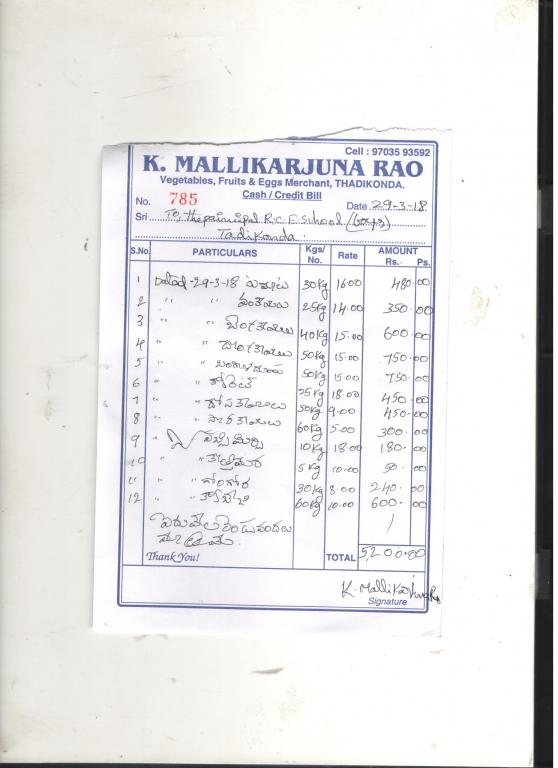 Cell : 97035 93592
K. MALLIKARJUNA RAO
Vegetables, Fruits & Eggs Merchant, THADIKONDA.
Cash / Credit Bill
No. 785 Date 29-3-18
Sri To, the principal R.C.E. School
Tadikonda
S.No. PARTICULARS Kgs/ No. Rate AMOUNT Rs. Ps.
1 Dated -29-3-18 30kg 16.00 480.00
2 " " వంకాయలు 25kg 14.00 350.00
3 " " బెండకాయలు 40kg 15.00 600.00
4 " " దొండకాయలు 50kg 15.00 750.00
5 " " బంగాళదుంప 50kg 15.00 750.00
6 " " 25kg 18.00 450.00
7 " " దోసకాయలు 50kg 9.00 450.00
8 " " 60kg 5.00 300.00
9 " పచ్చిమిర్చి 10kg 18.00 180.00
10 " " కొత్తిమీర 5kg 10.00 50.00
11 " " గోంగూర 30kg 8.00 240.00
12 " " 60kg 10.00 600.00
రెండువందలు
మాత్రమే
Thank You! TOTAL 5200.00
K. Mallikarjuna Rao
Signature